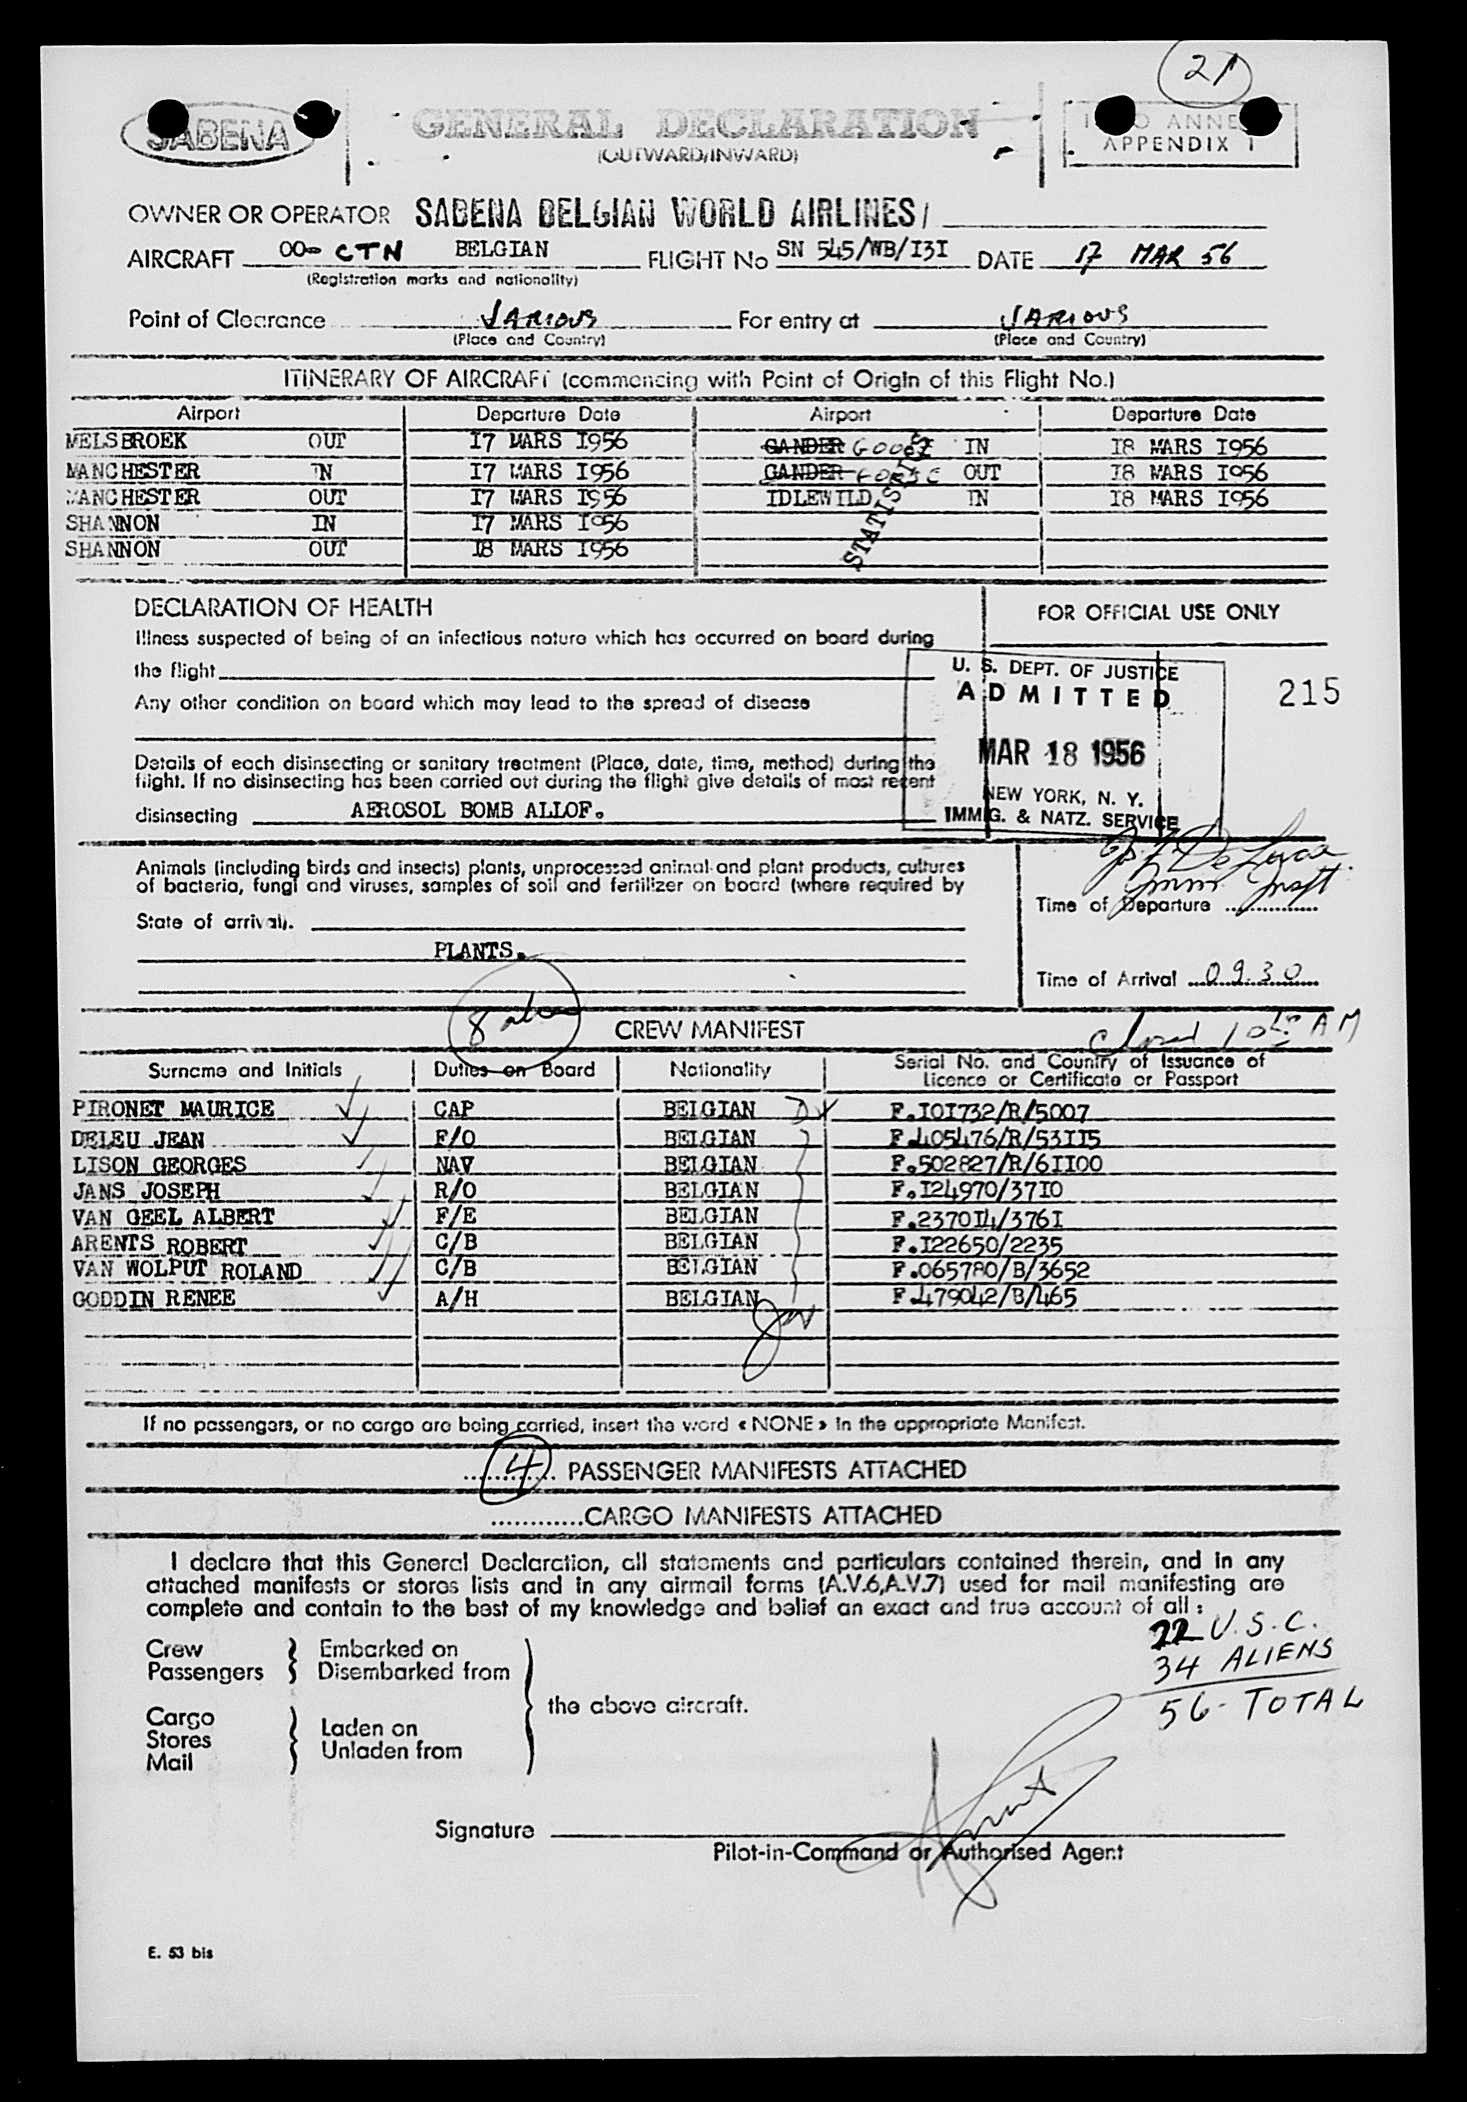 21
SABENA
GENERAL DECLARATION
(OUTWARD/INWARD)
APPENDIX 1
OWNER OR OPERATOR SABENA BELGIAN WORLD AIRLINES/
AIRCRAFT OO- CTN BELGIAN FLIGHT No SN 545/WB/I3I DATE 17 MAR 56
(Registration marks and nationality)
Point of Clearance VARIOUS For entry at VARIOUS
(Place and Country) (Place and Country)
ITINERARY OF AIRCRAFT (commencing with Point of Origin of this Flight No.)
Airport Departure Date Airport Departure Date
MELSBROEK OUT I7 MARS I956 GANDER GOOSE IN I8 MARS I956
MANCHESTER IN I7 MARS I956 GANDER GOOSE OUT I8 MARS I956
MANCHESTER OUT I7 MARS I956 IDLEWILD IN I8 MARS I956
SHANNON IN I7 MARS I956
SHANNON OUT I8 MARS I956
STATISTICS
DECLARATION OF HEALTH
FOR OFFICIAL USE ONLY
Illness suspected of being of an infectious nature which has occurred on board during
the flight
Any other condition on board which may lead to the spread of disease
Details of each disinsecting or sanitary treatment (Place, date, time, method) during the
flight. If no disinsecting has been carried out during the flight give details of most recent
disinsecting AEROSOL BOMB ALLOF.
U. S. DEPT. OF JUSTICE
ADMITTED
MAR 18 1956
NEW YORK, N. Y.
IMMIG. & NATZ. SERVICE
215
Animals (including birds and insects) plants, unprocessed animal and plant products, cultures
of bacteria, fungi and viruses, samples of soil and fertilizer on board (where required by
State of arrival).
PLANTS.
Immr. Inspt.
Time of Departure
Time of Arrival 0930
8
CREW MANIFEST
Surname and Initials Duties on Board Nationality Serial No. and Country of Issuance of
Licence or Certificate or Passport
PIRONET MAURICE CAP BELGIAN F.IOI732/R/5007
DELEU JEAN F/O BELGIAN F.405476/R/53II5
LISON GEORGES NAV BELGIAN F.502827/R/6II00
JANS JOSEPH R/O BELGIAN F.I24970/37I0
VAN GEEL ALBERT F/E BELGIAN F.2370I4/376I
ARENTS ROBERT C/B BELGIAN F.I22650/2235
VAN WOLPUT ROLAND C/B BELGIAN F.065780/B/3652
GODDIN RENEE A/H BELGIAN F.479042/B/465
If no passengers, or no cargo are being carried, insert the word « NONE » in the appropriate Manifest.
4 PASSENGER MANIFESTS ATTACHED
............CARGO MANIFESTS ATTACHED
I declare that this General Declaration, all statements and particulars contained therein, and in any
attached manifests or stores lists and in any airmail forms (A.V.6,A.V.7) used for mail manifesting are
complete and contain to the best of my knowledge and belief an exact and true account of all :
Crew
Passengers
Embarked on
Disembarked from
Cargo
Stores
Mail
Laden on
Unladen from
the above aircraft.
22 U.S.C.
34 ALIENS
56 - TOTAL
Signature
Pilot-in-Command or Authorised Agent
E. 53 bis